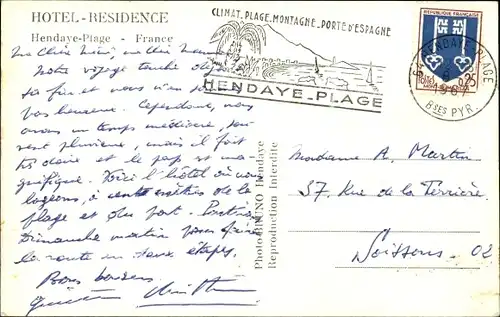 HOTEL-RESIDENCE
Hendaye-Plage - France
Notre voyage touche à sa
fin et nous n'en
pas heureux. Cependant, nous
avons un temps médiocre,
vent pluvieux, mais il fait
très clair et le pays est ma-
gnifique. Voici l'hôtel où nous
logeons, à cent mètres de la
plage et du port. Partirons
Dimanche matin pour faire
la route en deux étapes.
Bons baisers
CLIMAT.PLAGE.MONTAGNE.PORTE D'ESPAGNE
HENDAYE-PLAGE
REPUBLIQUE FRANÇAISE
0,25
64 HENDAYE-PLAGE
1967
Bses PYR.
Photo BRUNO Hendaye
Reproduction Interdite
Madame A. Martin
37. Rue de la
Soissons. 02